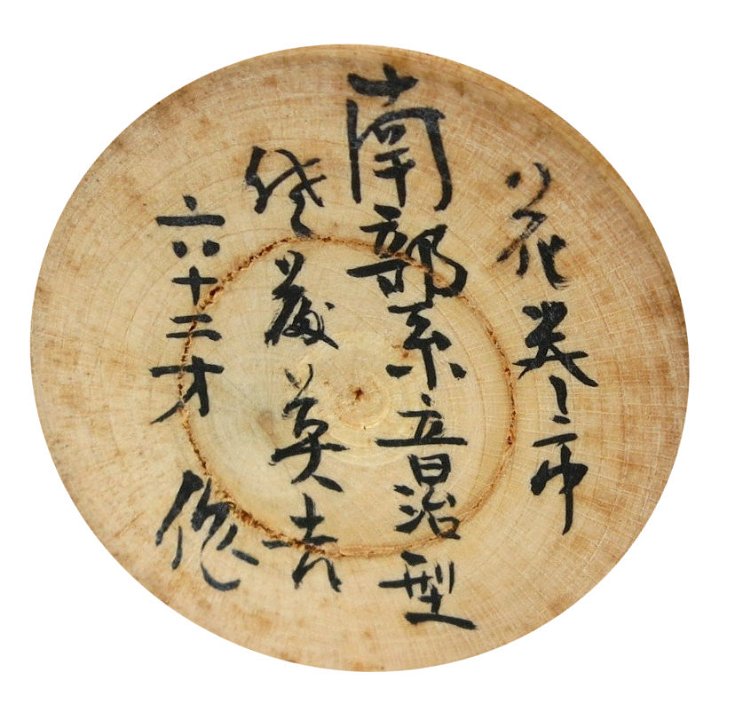 花巻市
南部系立日治型
佐藤英吉
六十三才 作